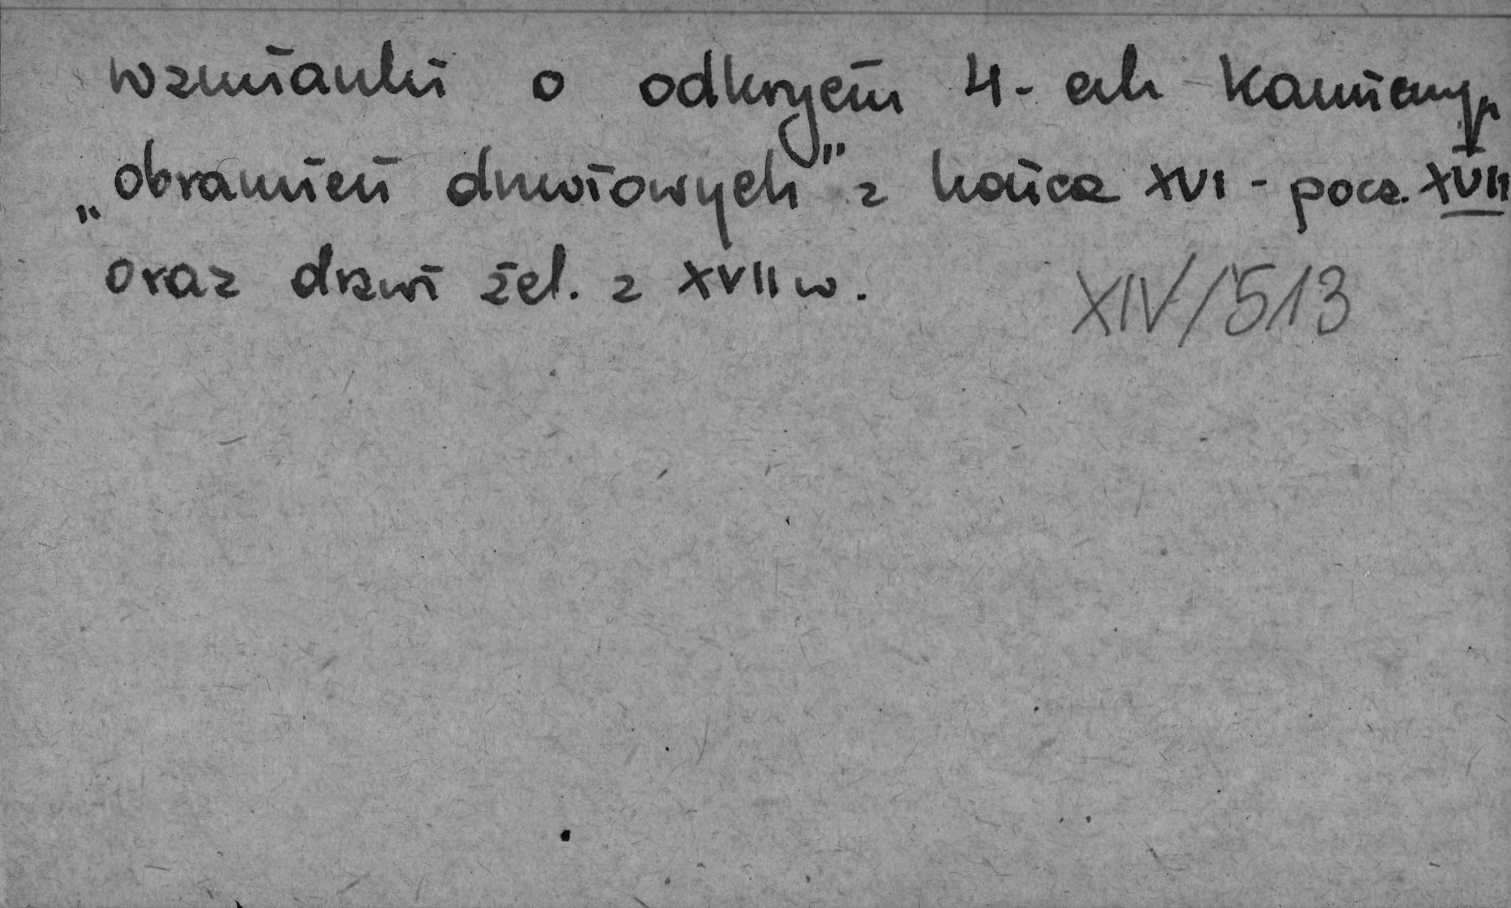 wzmianki o odkryciu 4-ech kamiennych
„obramień drzwiowych" z końca XVI - pocz. XVII
oraz drzwi żel. z XVII w.
XIV/513